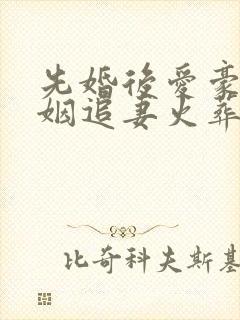 先婚後愛豪
姻追妻火葬
比奇科夫斯基